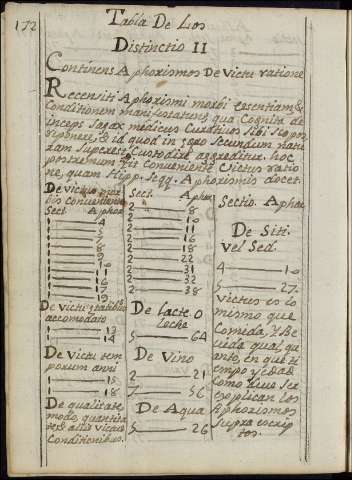 172
Tabla De Los
Distinctio II
Continens Aphorismos De Victu ratione
Recensiti Aphorismi morbi essentiam, &
Conditionem manifestantes, qua Cognita de
inceps Sagax medicus Curativus Sibi Scopos
riponere, & id quod in sano Secundum natu
ram Superest Custodire aggreditur. hoc
postremum fit conveniente Victus ratio
ne, quam Hipp. Seqq. Aphorismis docet.
De victu mor
bis conveniente
Sect. Aphor
1 — 4
1 — 5
1 — 7
1 — 8
1 — 9
1 — 10
1 — 11
1 — 16
1 — 17
1 — 19
De victu ætatibus
accomodato
1 — 13
1 — 14
De Victu tem
porum anni
1 — 15
1 — 18
De qualitate
modo, quantita
te, & aliis victus
conditionibus.
Sect. Aphor
2 — 8
2 — 10
2 — 11
2 — 16
2 — 18
2 — 22
2 — 31
2 — 32
2 — 38
De lacte o
leche
5 — 64
De Vino
2 — 21
7 — 56
De Aqua
5 — 26
Sectio. Aphor
De Siti
Vel Sed.
4 — 19
5 — 27
Victus es lo
mismo que
Comida, y Be
vida qual, qu
anto, en que ti
empo y edad
Como deve Ser
explican los
Aphorismos
Supra escrip
tos.